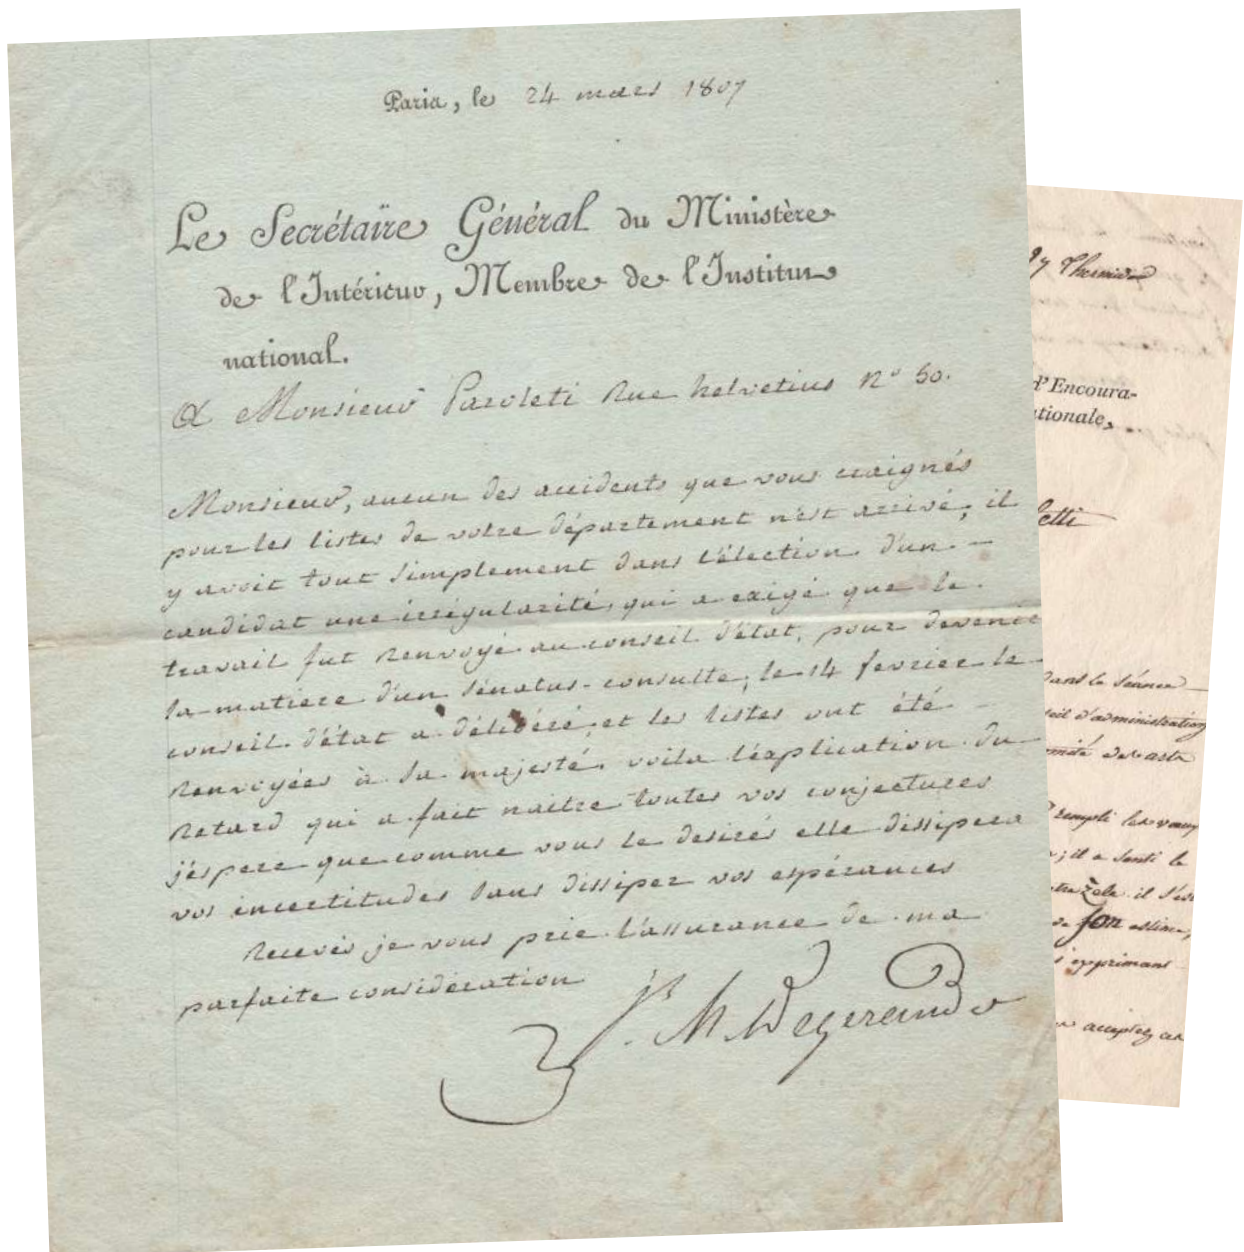 Paris, le 24 mars 1807
Le Secrétaire Général du Ministère
de l'Intérieur, Membre de l'Institut
national.
A Monsieur Paroleti Rue helvetius n° 50.
Monsieur, aucun des accidents que vous craignés
pour les listes de votre département n'est arrivé, il
y avoit tout simplement dans l'élection d'un
candidat une irrégularité, qui a exigé que le
travail fut renvoyé au conseil d'état, pour devenir
la matiere d'un sénatus-consulte, le 14 fevrier le
conseil d'état a délibéré, et les listes ont été
renvoyées à sa majesté. voila l'explication du
retard qui a fait naitre toutes vos conjectures
j'espere que comme vous le desirés elle dissipera
vos incertitudes sans dissiper vos espérances
Recevés je vous prie l'assurance de ma
parfaite considération
J. M. Degerando
27 Thermidor
d'Encoura-
tionale,
letti
dans la séance
seil d'administration
omité des arts
rempli les vœux
; il a senti le
zele il s'est
son estime,
exprimant
acceptez ces